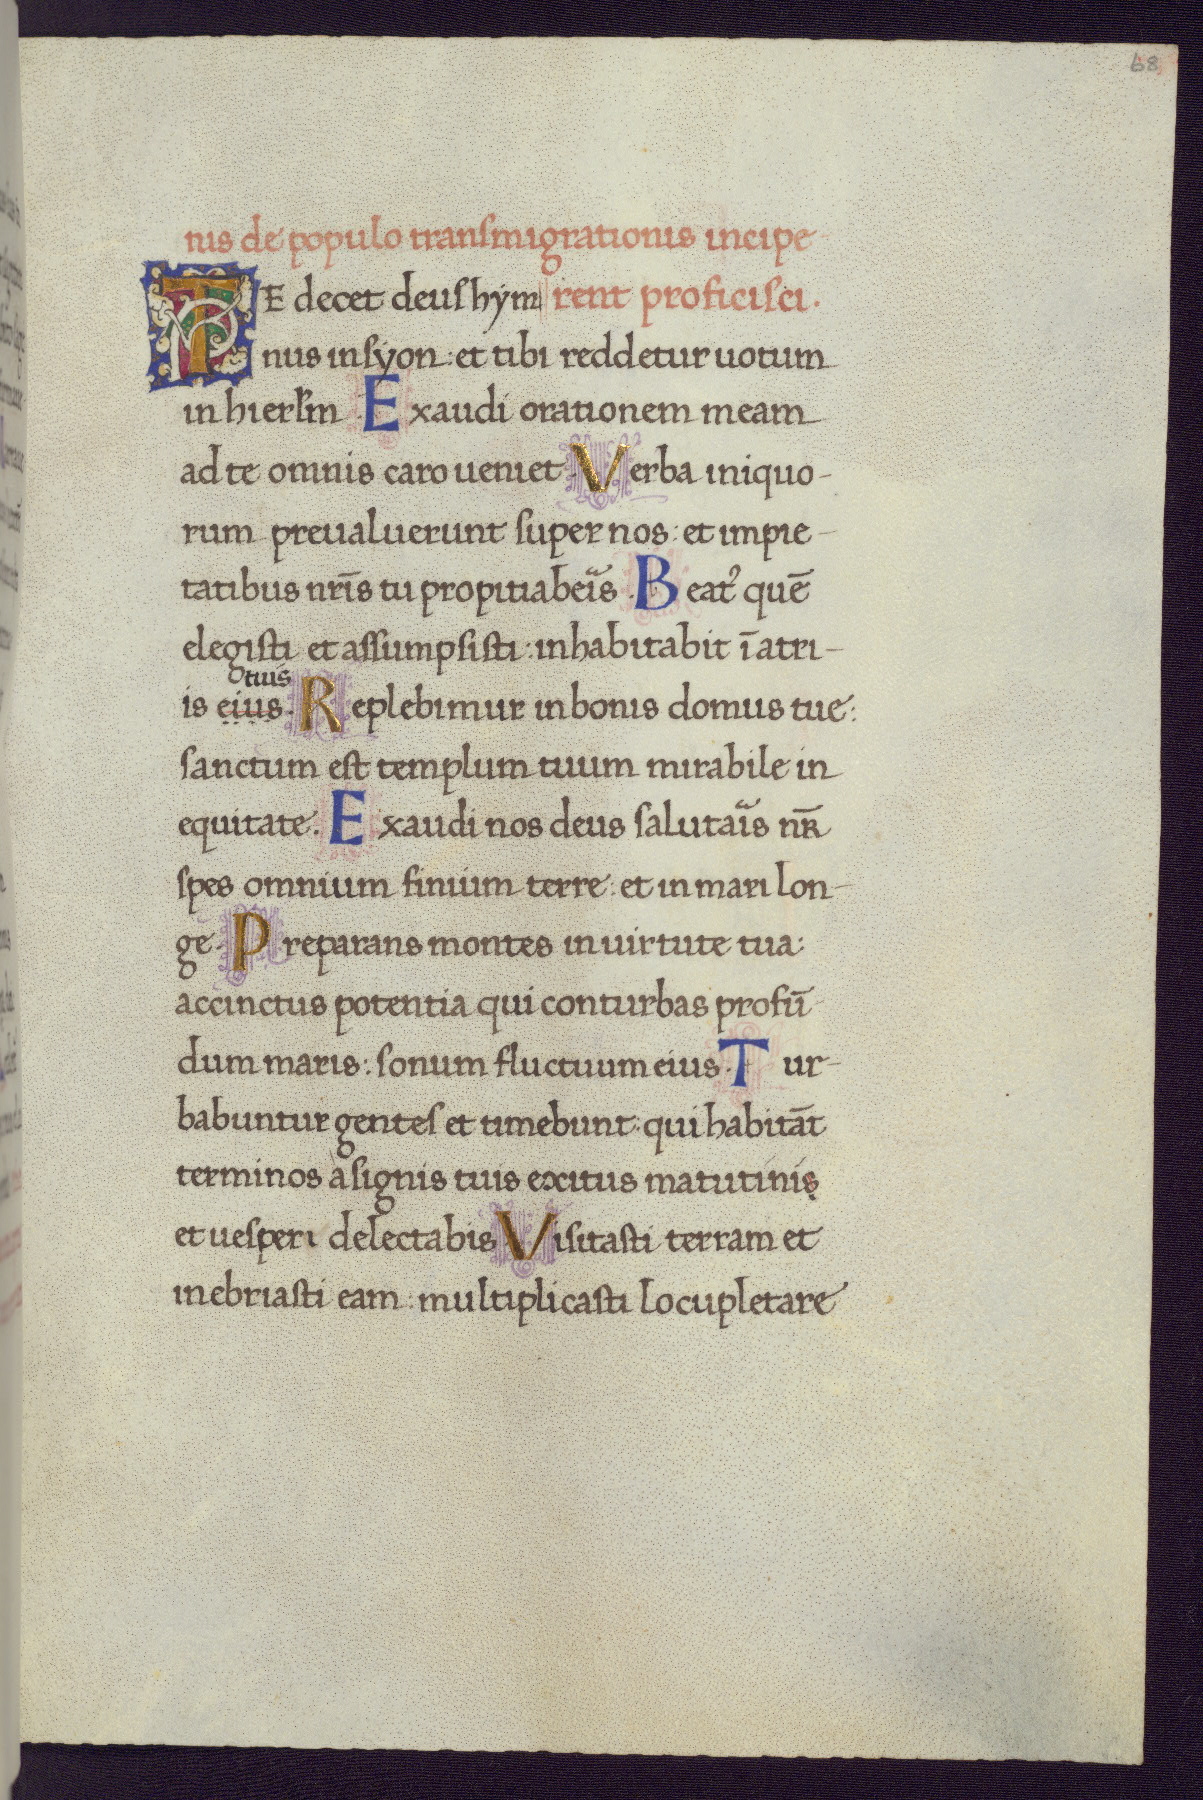 68
nis de populo transmigrationis incipe
TE decet deus hym rent proficisci.
nus in syon: et tibi reddetur uotum
in hierl̄m Exaudi orationem meam
ad te omnis caro ueniet. Verba iniquo-
rum preualuerunt super nos: et impie-
tatibus nr̄is tu propitiabeis. Beat᾽ quē
elegisti et assumpsisti: inhabitabit ī atri-
tuis
is eius. Replebimur in bonis domus tue:
sanctum est templum tuum mirabile in
equitate. Exaudi nos deus salutais nr̄
spes omnium finium terre: et in mari lon-
ge. Preparans montes in uirtute tua:
accinctus potentia qui conturbas profū
dum maris: sonum fluctuum eius. Tur-
babuntur gentes et timebunt: qui habitāt
terminos a signis tuis exitus matutinis
et uesperi delectabis Visitasti terram et
inebriasti eam: multiplicasti locupletare